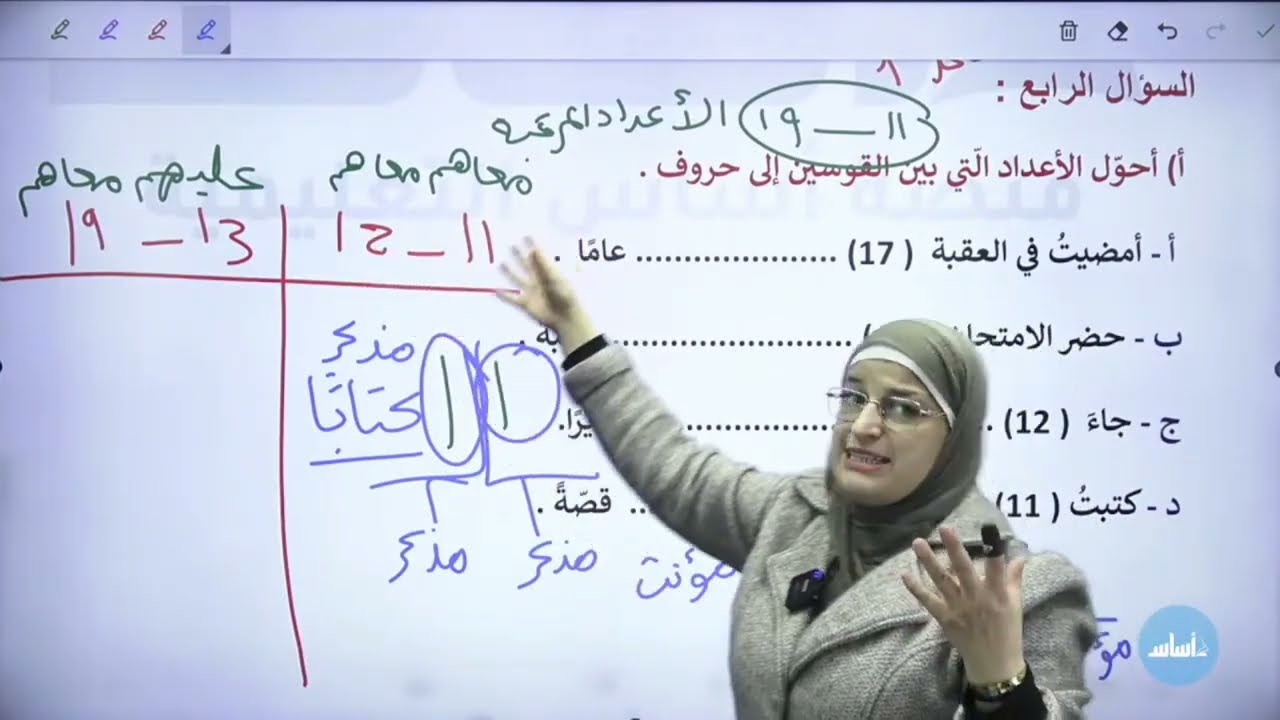 السؤال الرابع :
11 — 19 الأعداد المركبة
أ) أحوّل الأعداد الّتي بين القوسين إلى حروف .
معاهم معاهم
عليهم معاهم
11 – 12
13 – 19
أ - أمضيتُ في العقبة ( 17) ..................... عامًا .
ب - حضر الامتحان
ج - جاءَ ( 12) ..
د - كتبتُ ( 11) .. قصّةً .
مذكر
1 1
كتابًا
مذكر مذكر مؤنث
أساس